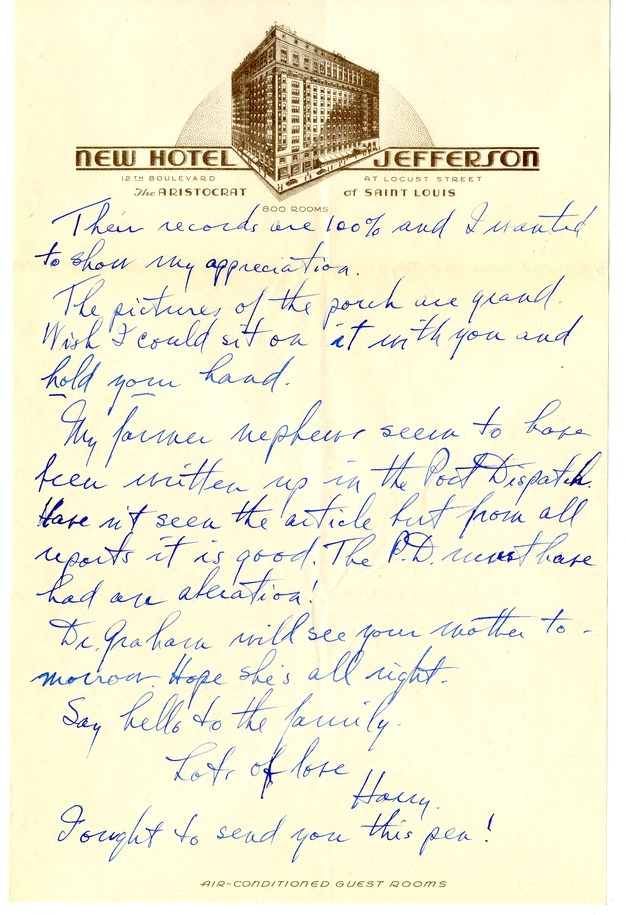 NEW HOTEL JEFFERSON
12TH BOULEVARD AT LOCUST STREET
The ARISTOCRAT of SAINT LOUIS
800 ROOMS
Their records are 100% and I wanted
to show my appreciation.
The pictures of the porch are grand.
Wish I could sit on it with you and
hold your hand.
My farmer nephews seem to have
been written up in the Post Dispatch.
Have n't seen the article but from all
reports it is good. The P.D. must have
had an aberation!
Dr. Graham will see your mother to-
morrow. Hope she's all right.
Say hello to the family.
Lots of love
Harry.
I ought to send you this pen!
AIR-CONDITIONED GUEST ROOMS